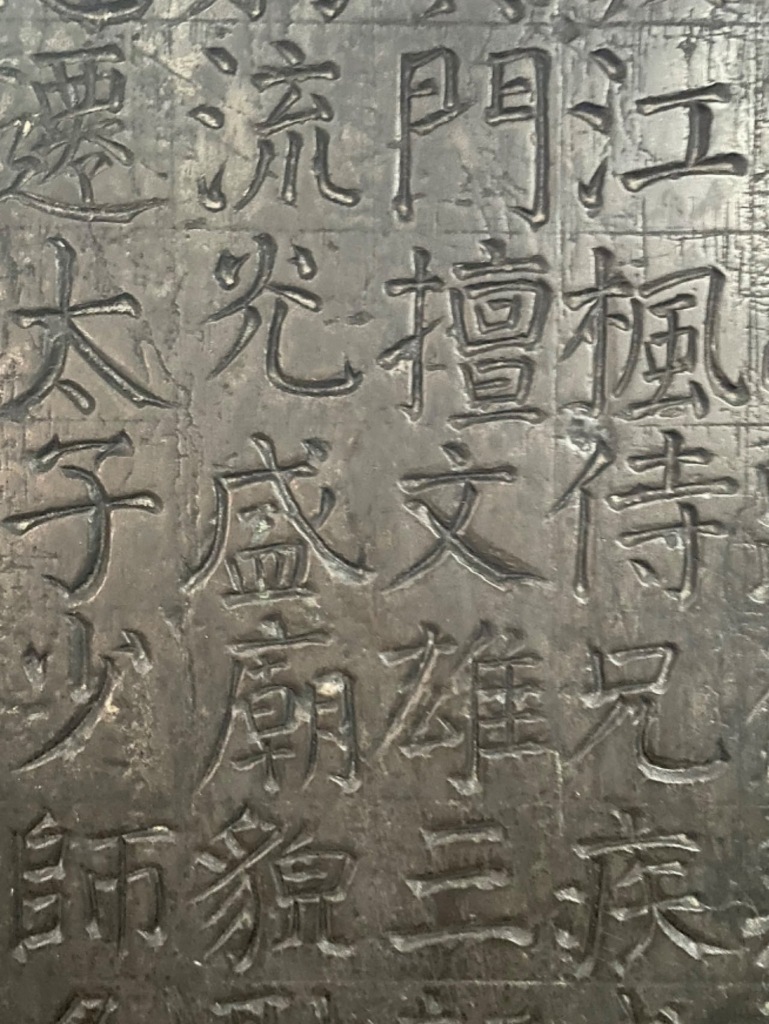 江楓侍兄疾
門擅文雄三
流光盛廟貌
遷太子少師